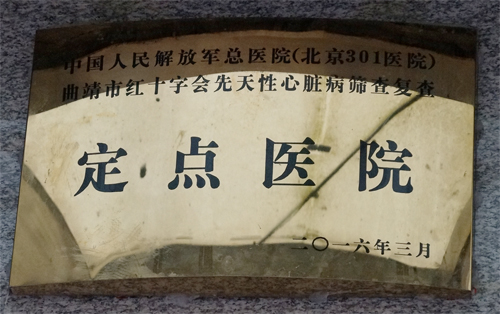 中国人民解放军总医院(北京301医院)
曲靖市红十字会先天性心脏病筛查复查
定点医院
二〇一六年三月